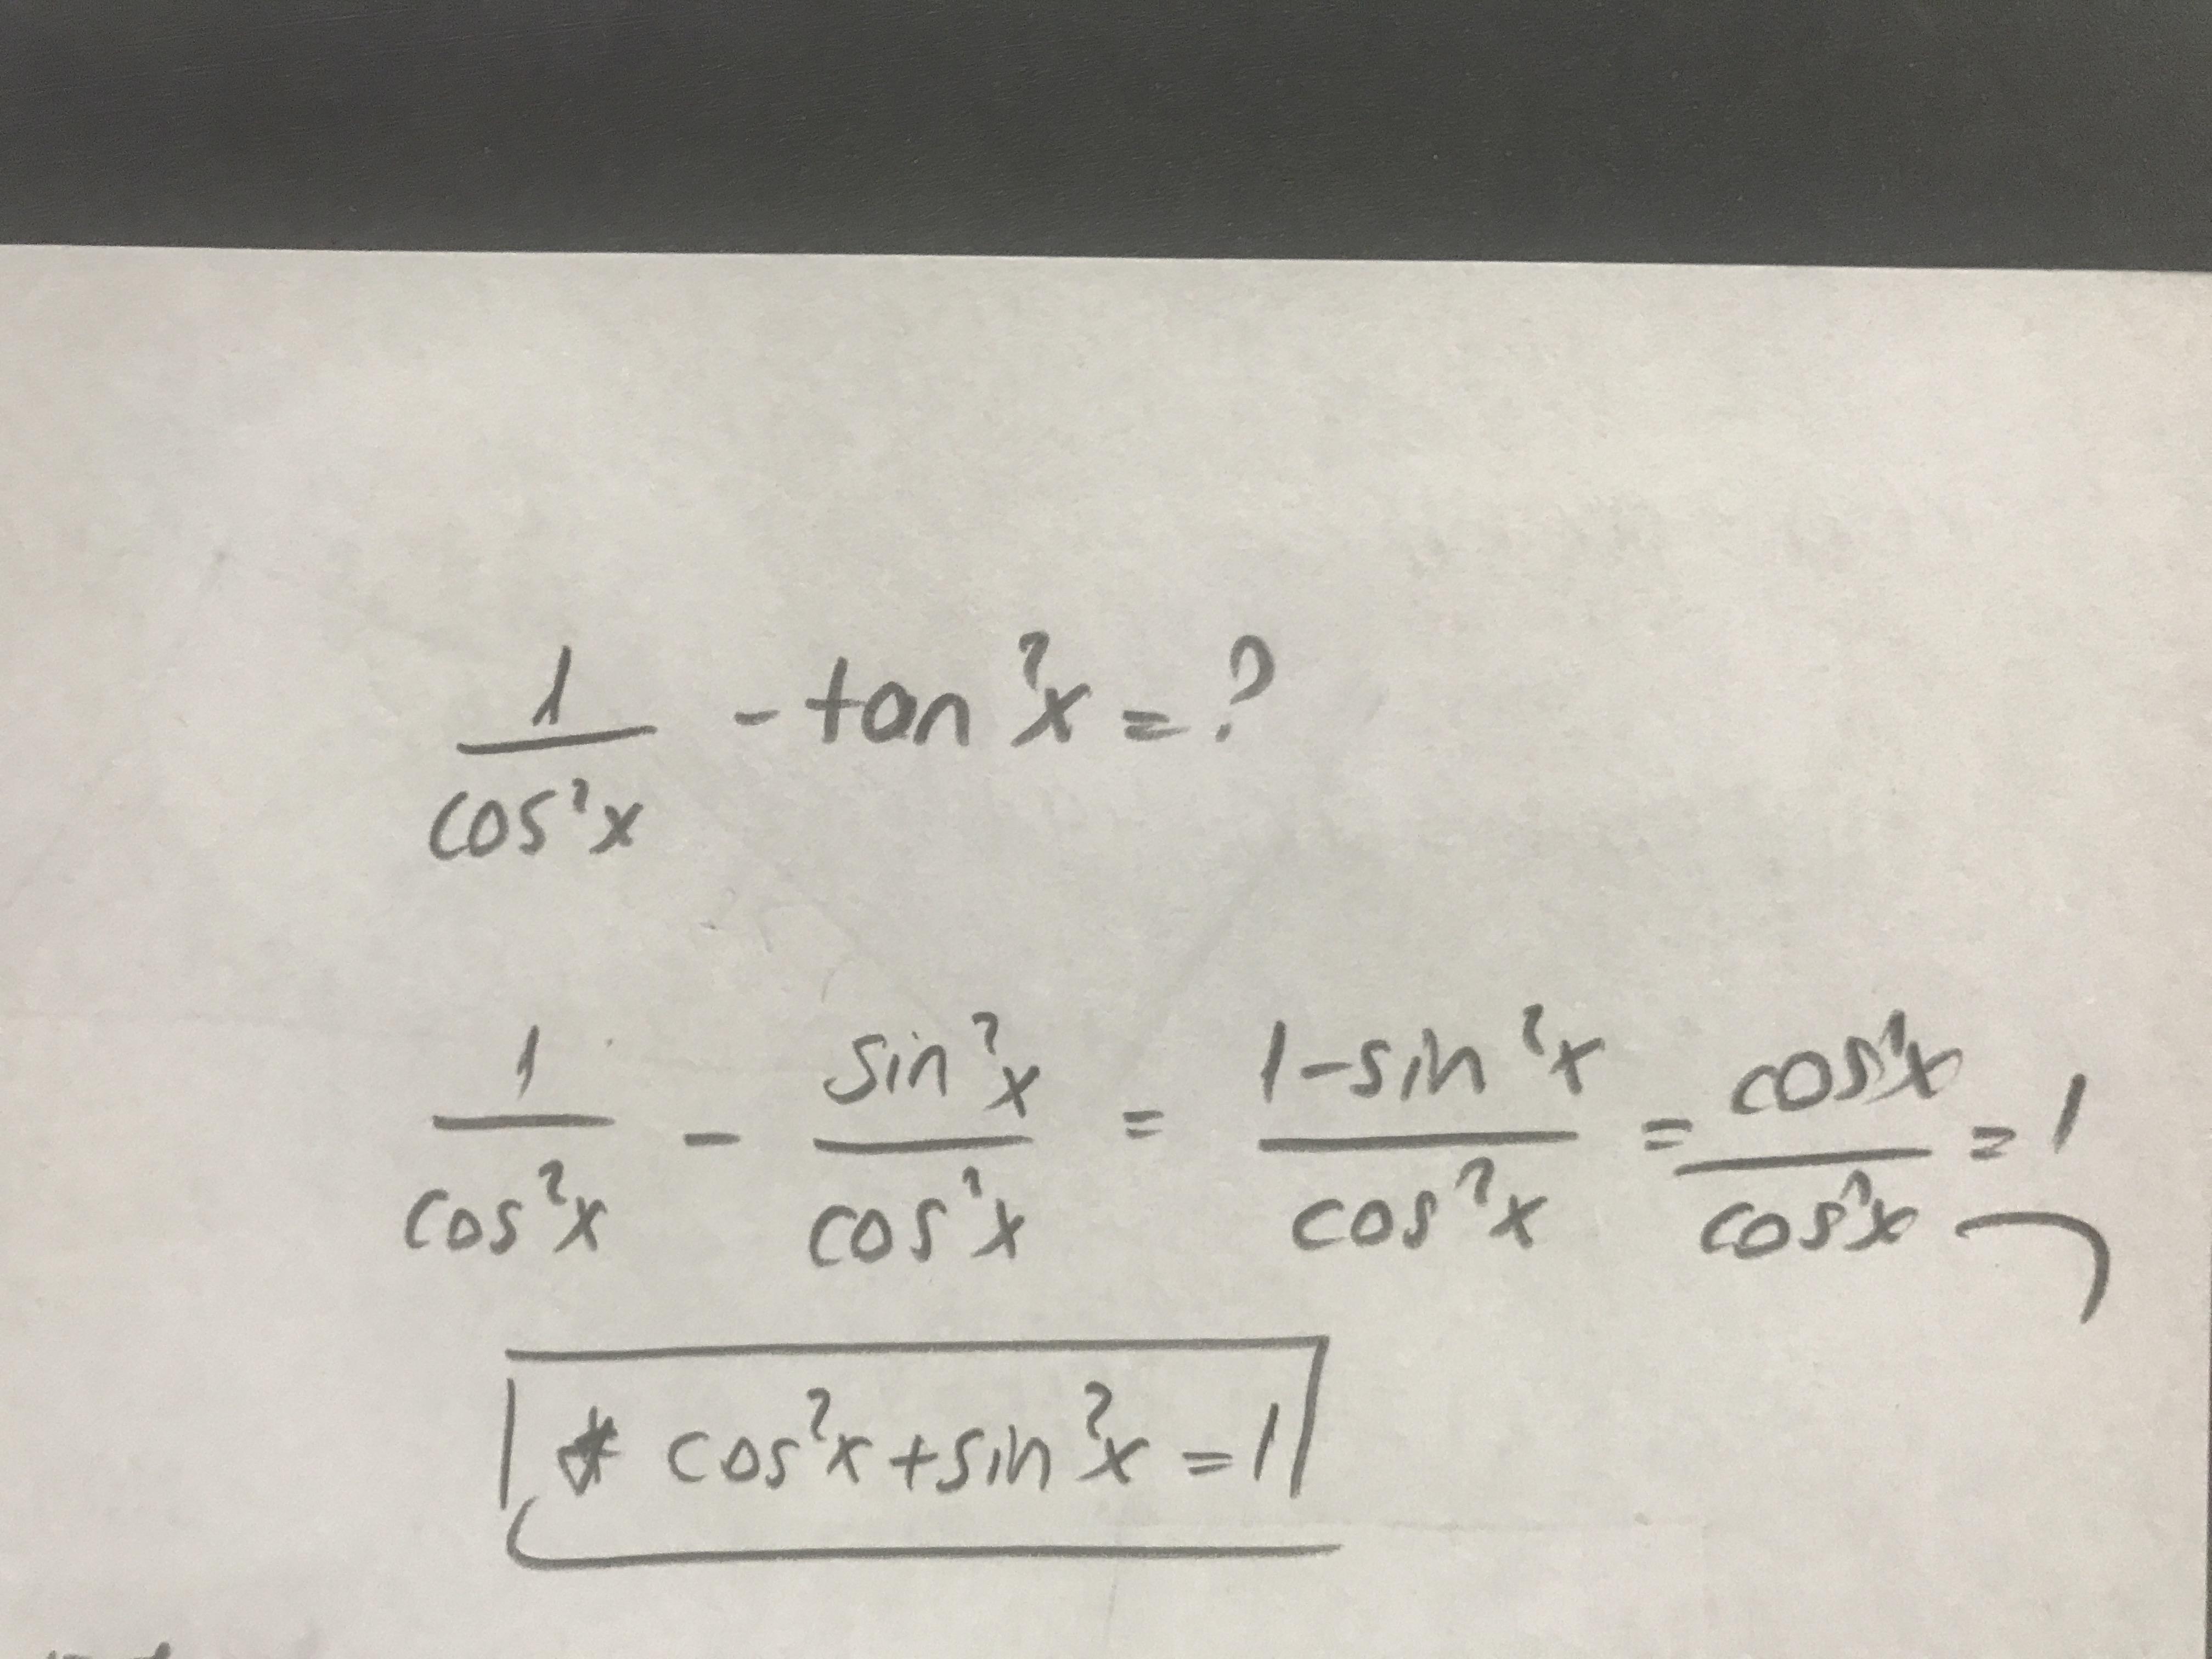 1/cos²x - tan²x = ?
1/cos²x - sin²x/cos²x = 1-sin²x/cos²x = cos²x/cos²x = 1
* cos²x + sin²x = 1